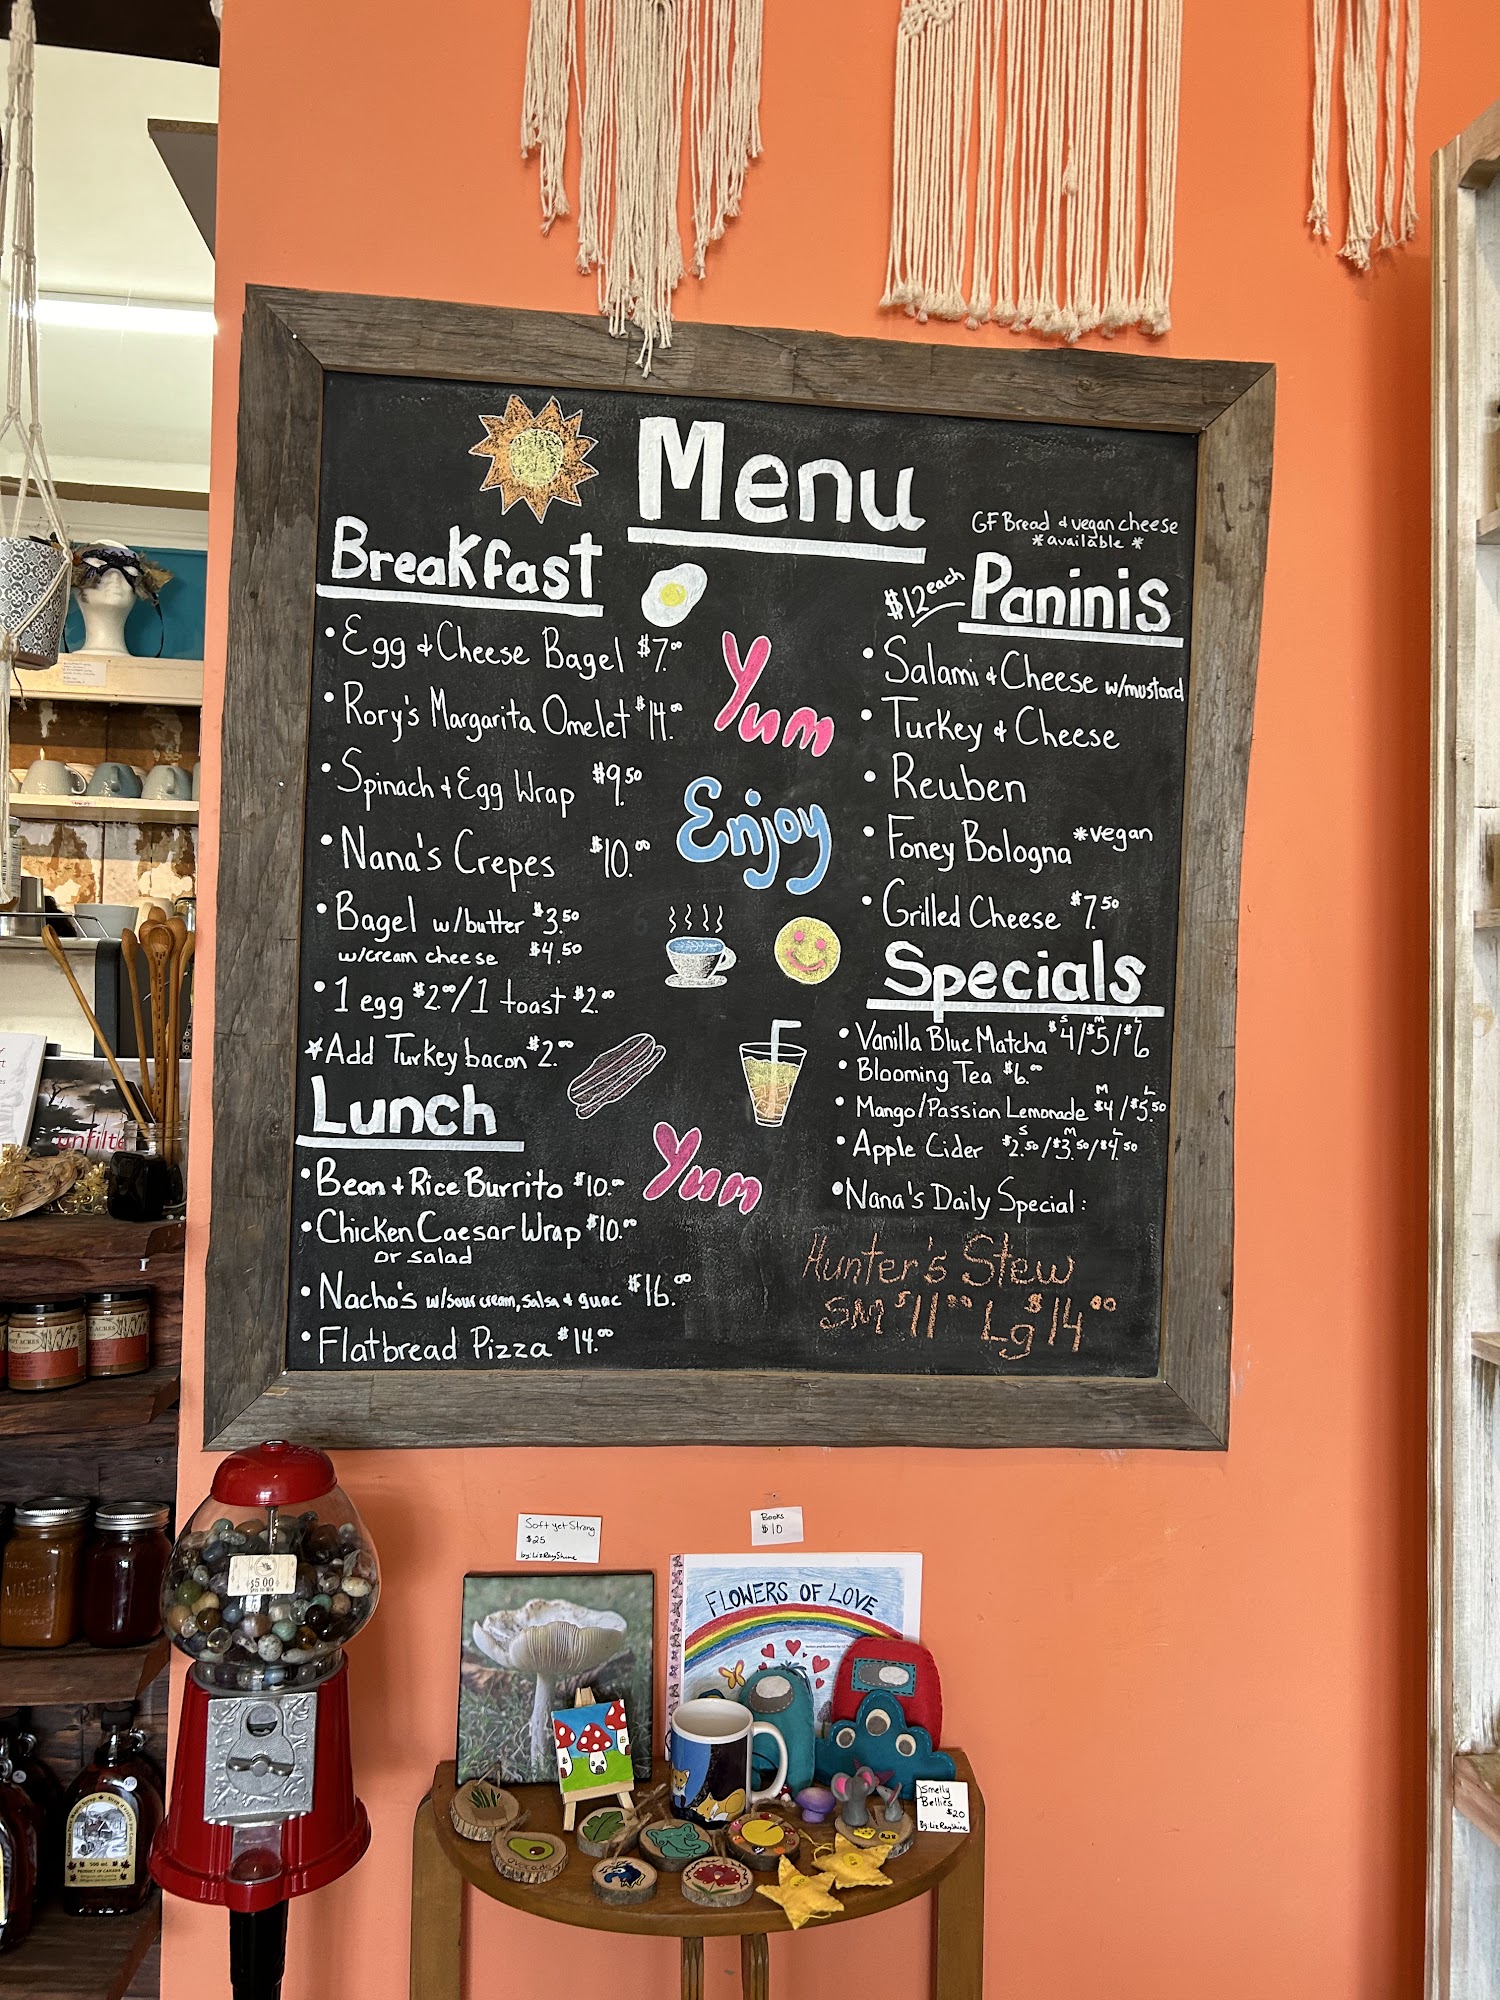 Menu
Breakfast
• Egg & Cheese Bagel $7.00
• Rory's Margarita Omelet $14.00
• Spinach & Egg Wrap $9.50
• Nana's Crepes $10.00
• Bagel w/butter $3.50
w/cream cheese $4.50
• 1 egg $2.00/1 toast $2.00
*Add Turkey bacon $2.00
Lunch
• Bean + Rice Burrito $10.00
• Chicken Caesar Wrap $10.00
or salad
• Nacho's w/sour cream, salsa & guac $16.00
• Flatbread Pizza $14.00
Yum
Enjoy
Yum
GF Bread & vegan cheese
*available*
$12 each Paninis
• Salami & Cheese w/mustard
• Turkey & Cheese
• Reuben
• Foney Bologna *vegan
• Grilled Cheese $7.50
Specials
S M L
• Vanilla Blue Matcha $4/$5/$6
• Blooming Tea $6.00
M L
• Mango/Passion Lemonade $4/$5.50
S M L
• Apple Cider $2.50/$3.50/$4.50
• Nana's Daily Special:
Hunter's Stew
SM $11.00 Lg $14.00
Soft yet Strong
$25
by: LizRayShine
Books
$10
$5.00
FLOWERS OF LOVE
Smelly
Bellies
$20
By LizRayShine
unfilte
MASON
ACRES
Avocado
500 ml
PRODUCT OF CANADA